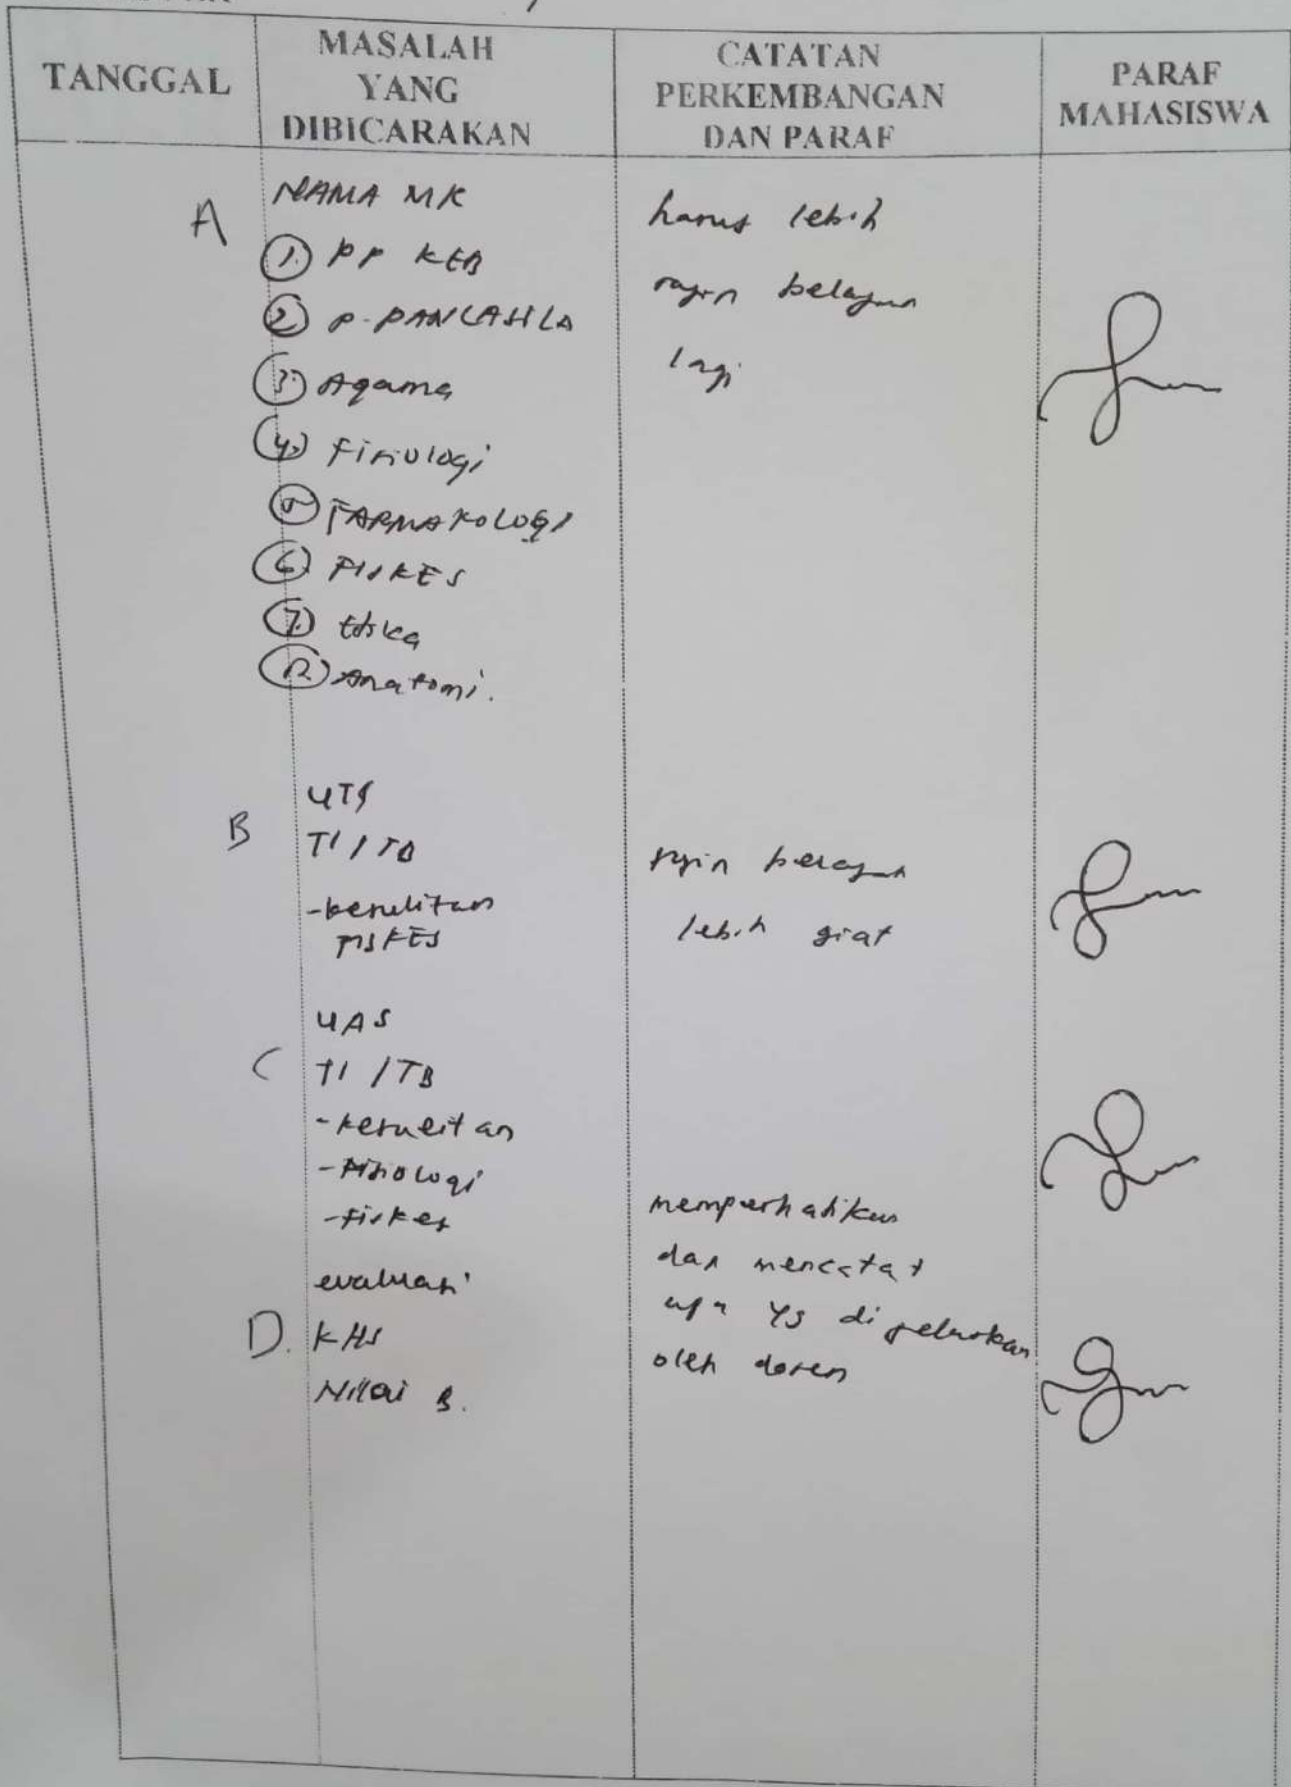 TANGGAL
MASALAH
YANG
DIBICARAKAN
CATATAN
PERKEMBANGAN
DAN PARAF
PARAF
MAHASISWA
A
NAMA MK
1. PP KEB
2. P. PANCASILA
3. Agama
4. Fisiologi
5. FARMAKOLOGI
6. FISKES
7. Etika
8. Anatomi.
harus lebih
rajin belajar
lagi
B
UTS
T1 / TB
- kesulitan
FISKES
rajin belajar
lebih giat
C
UAS
T1 / TB
- kesulitan
- Fisiologi
- fiskes
D.
evaluasi
KHS
Nilai B.
memperhatikan
dan mencatat
apa yg dijelaskan
oleh dosen